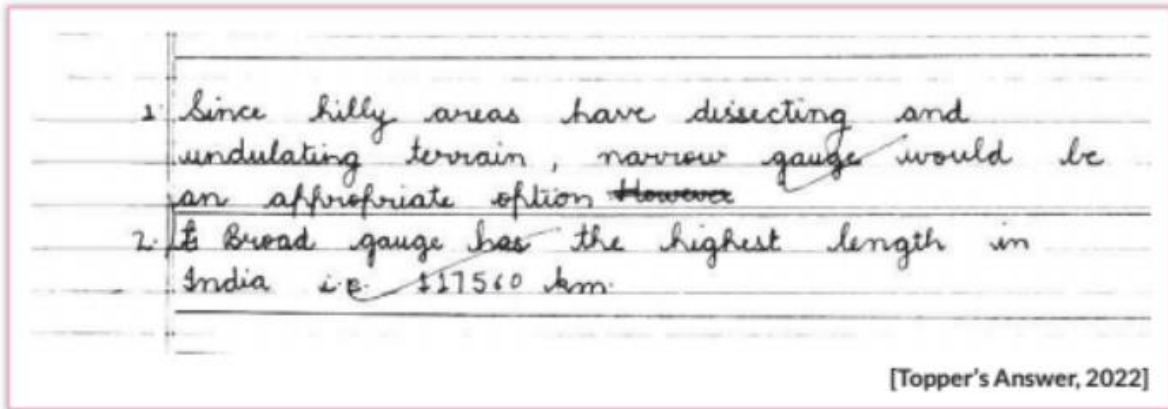 1. Since hilly areas have dissecting and
undulating terrain, narrow gauge would be
an appropriate option However
2. Broad gauge has the highest length in
India i.e. 117560 km.
[Topper's Answer, 2022]